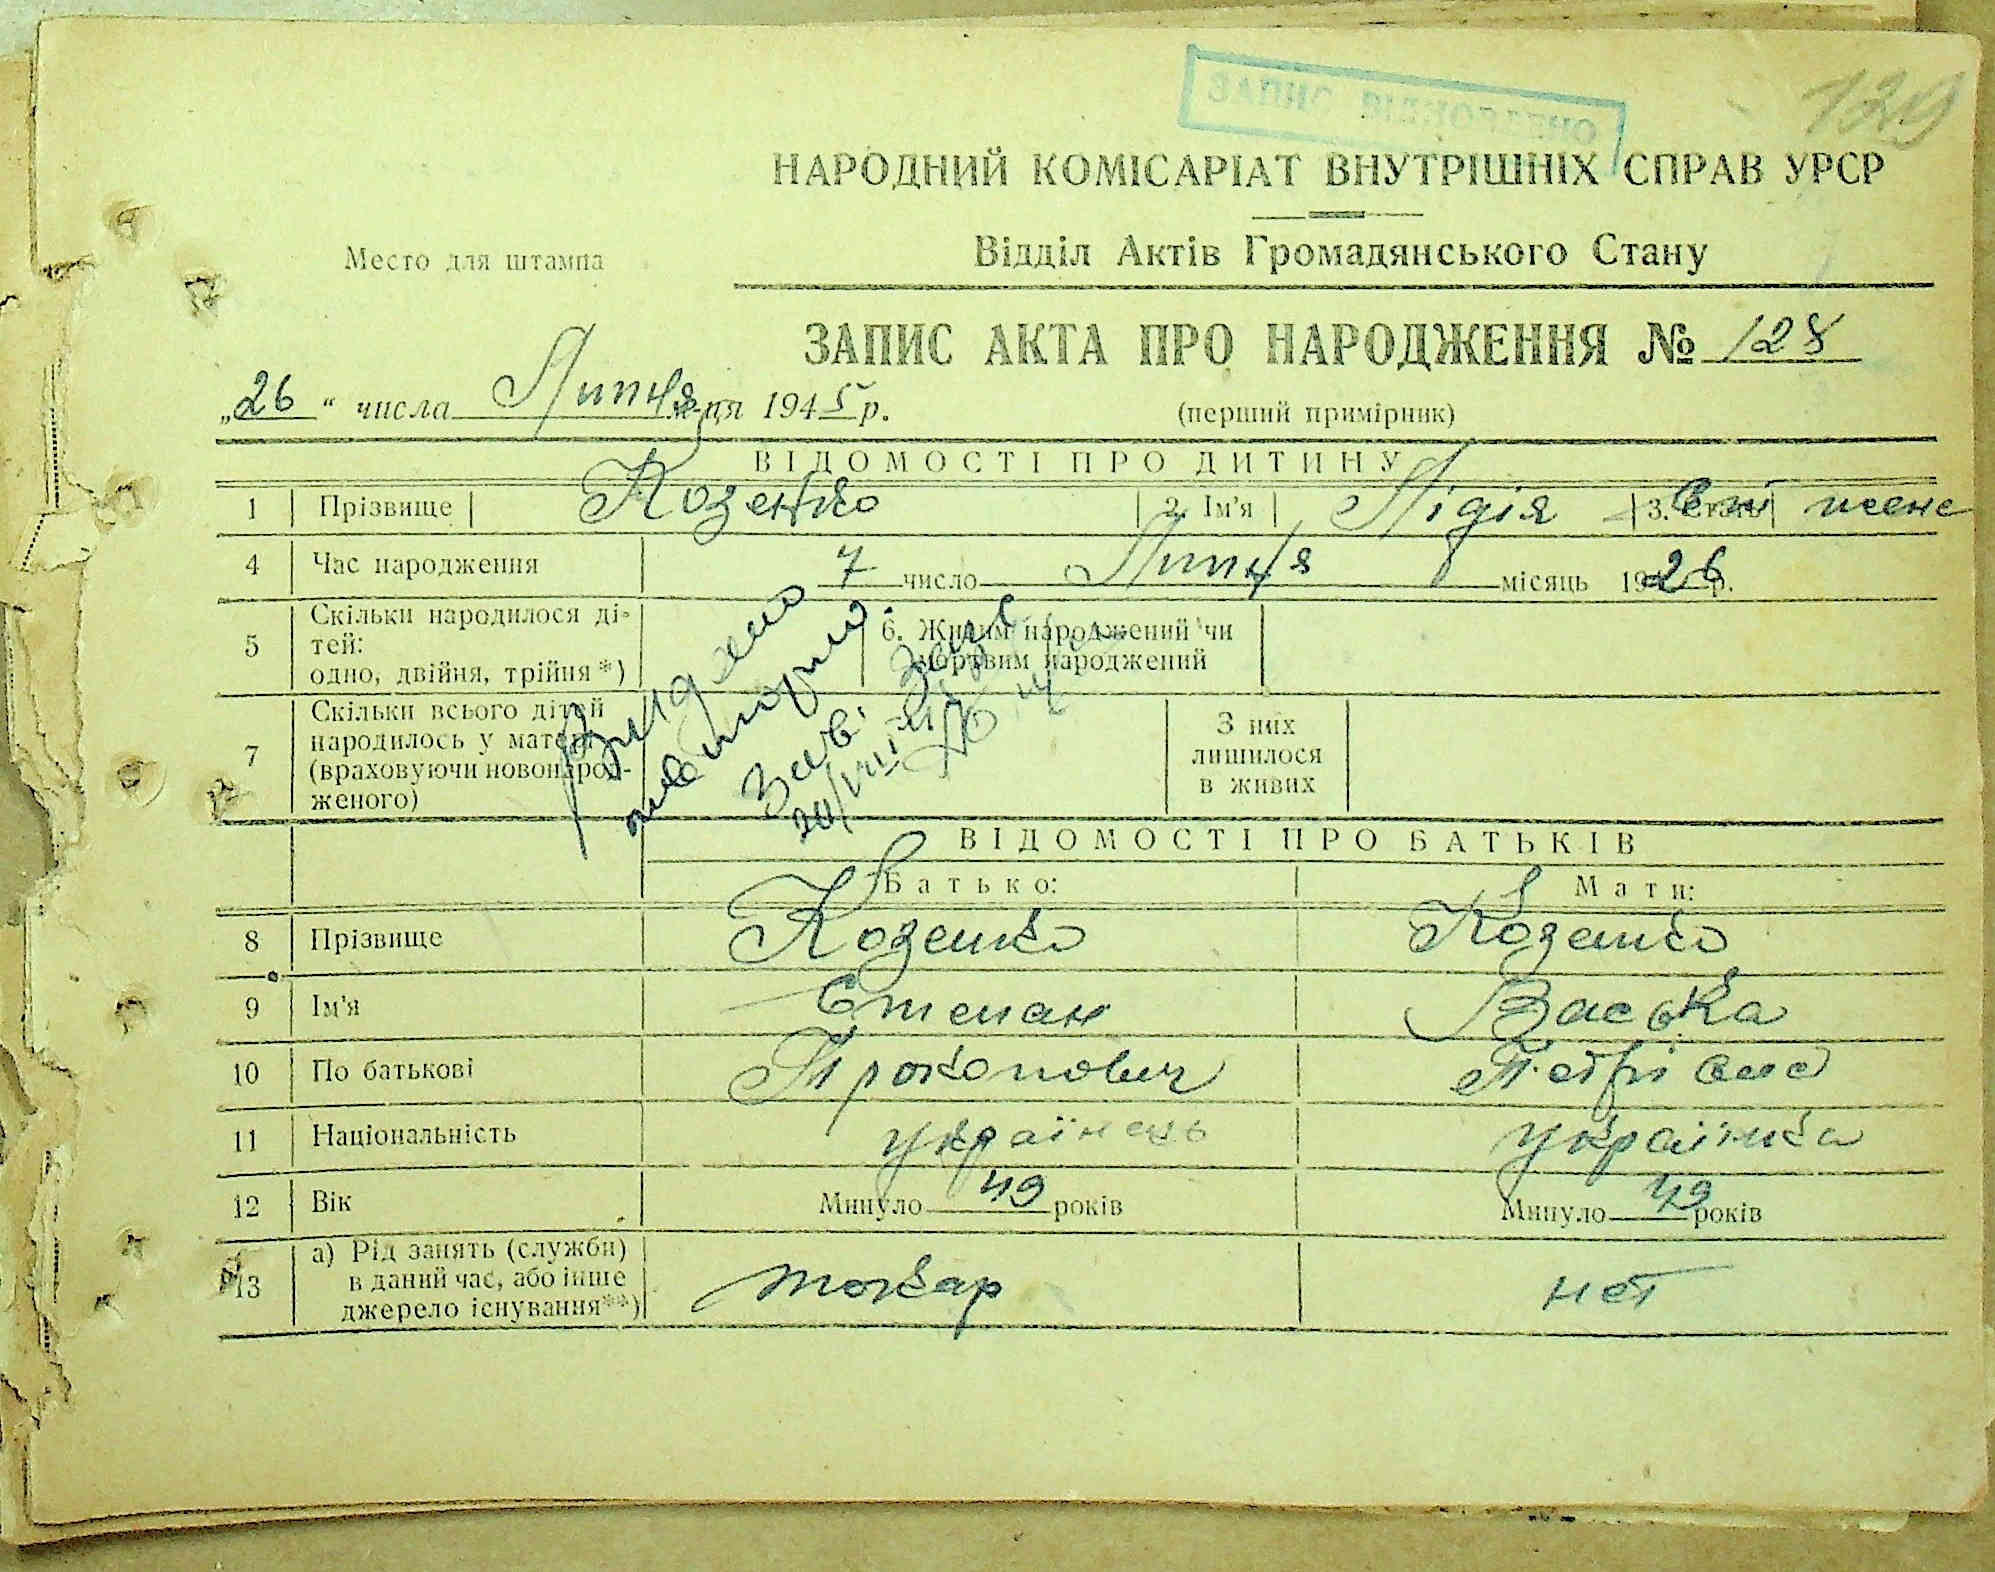 ЗАПИС ВІДНОВЛЕНО
129
НАРОДНИЙ КОМІСАРІАТ ВНУТРІШНІХ СПРАВ УРСР
Место для штампа
Відділ Актів Громадянського Стану
ЗАПИС АКТА ПРО НАРОДЖЕННЯ № 128
„26“ числа Липня м-ця 1945 р.
(перший примірник)
ВІДОМОСТІ ПРО ДИТИНУ
1 Прізвище Козенко 2. Ім'я Лідія 3. Стать жене
4 Час народження 7 число Липня місяць 1926 р.
5 Скільки народилося ді-
тей:
одно, двійня, трійня *)
6. Живим народжений чи
мертвим народжений
7 Скільки всього дітей
народилось у матері
(враховуючи новонарод-
женого)
З них
лишилося
в живих
Видано
повторно
ВІДОМОСТІ ПРО БАТЬКІВ
Батько: Мати:
8 Прізвище Козенко Козенко
9 Ім'я Степан Васька
10 По батькові Прокопович Петрівна
11 Національність українець українка
12 Вік Минуло 49 років Минуло 49 років
13 а) Рід занять (служби)
в даний час, або інше
джерело існування**)
токар нет